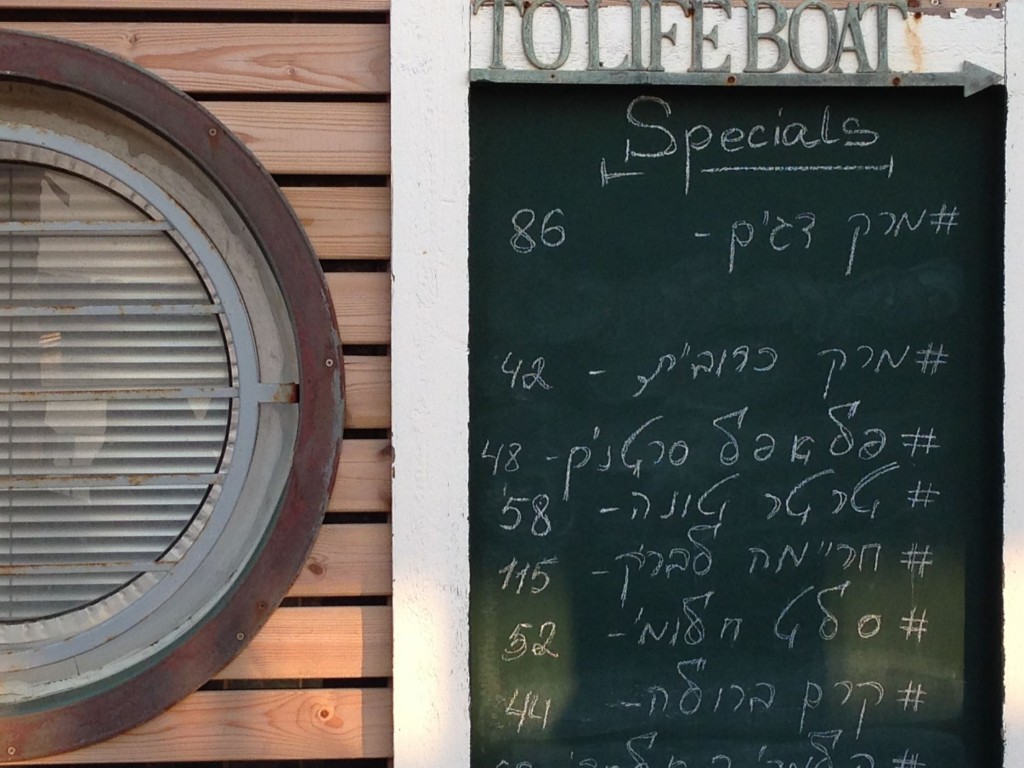 TO LIFE BOAT
Specials
#מרק דגים - 86
#מרק כרובית - 42
#פלאפל סרטנים - 48
#טרטר טונה - 58
#חריימה לברק - 115
#סלט חלומי - 52
#קרם ברולה - 44